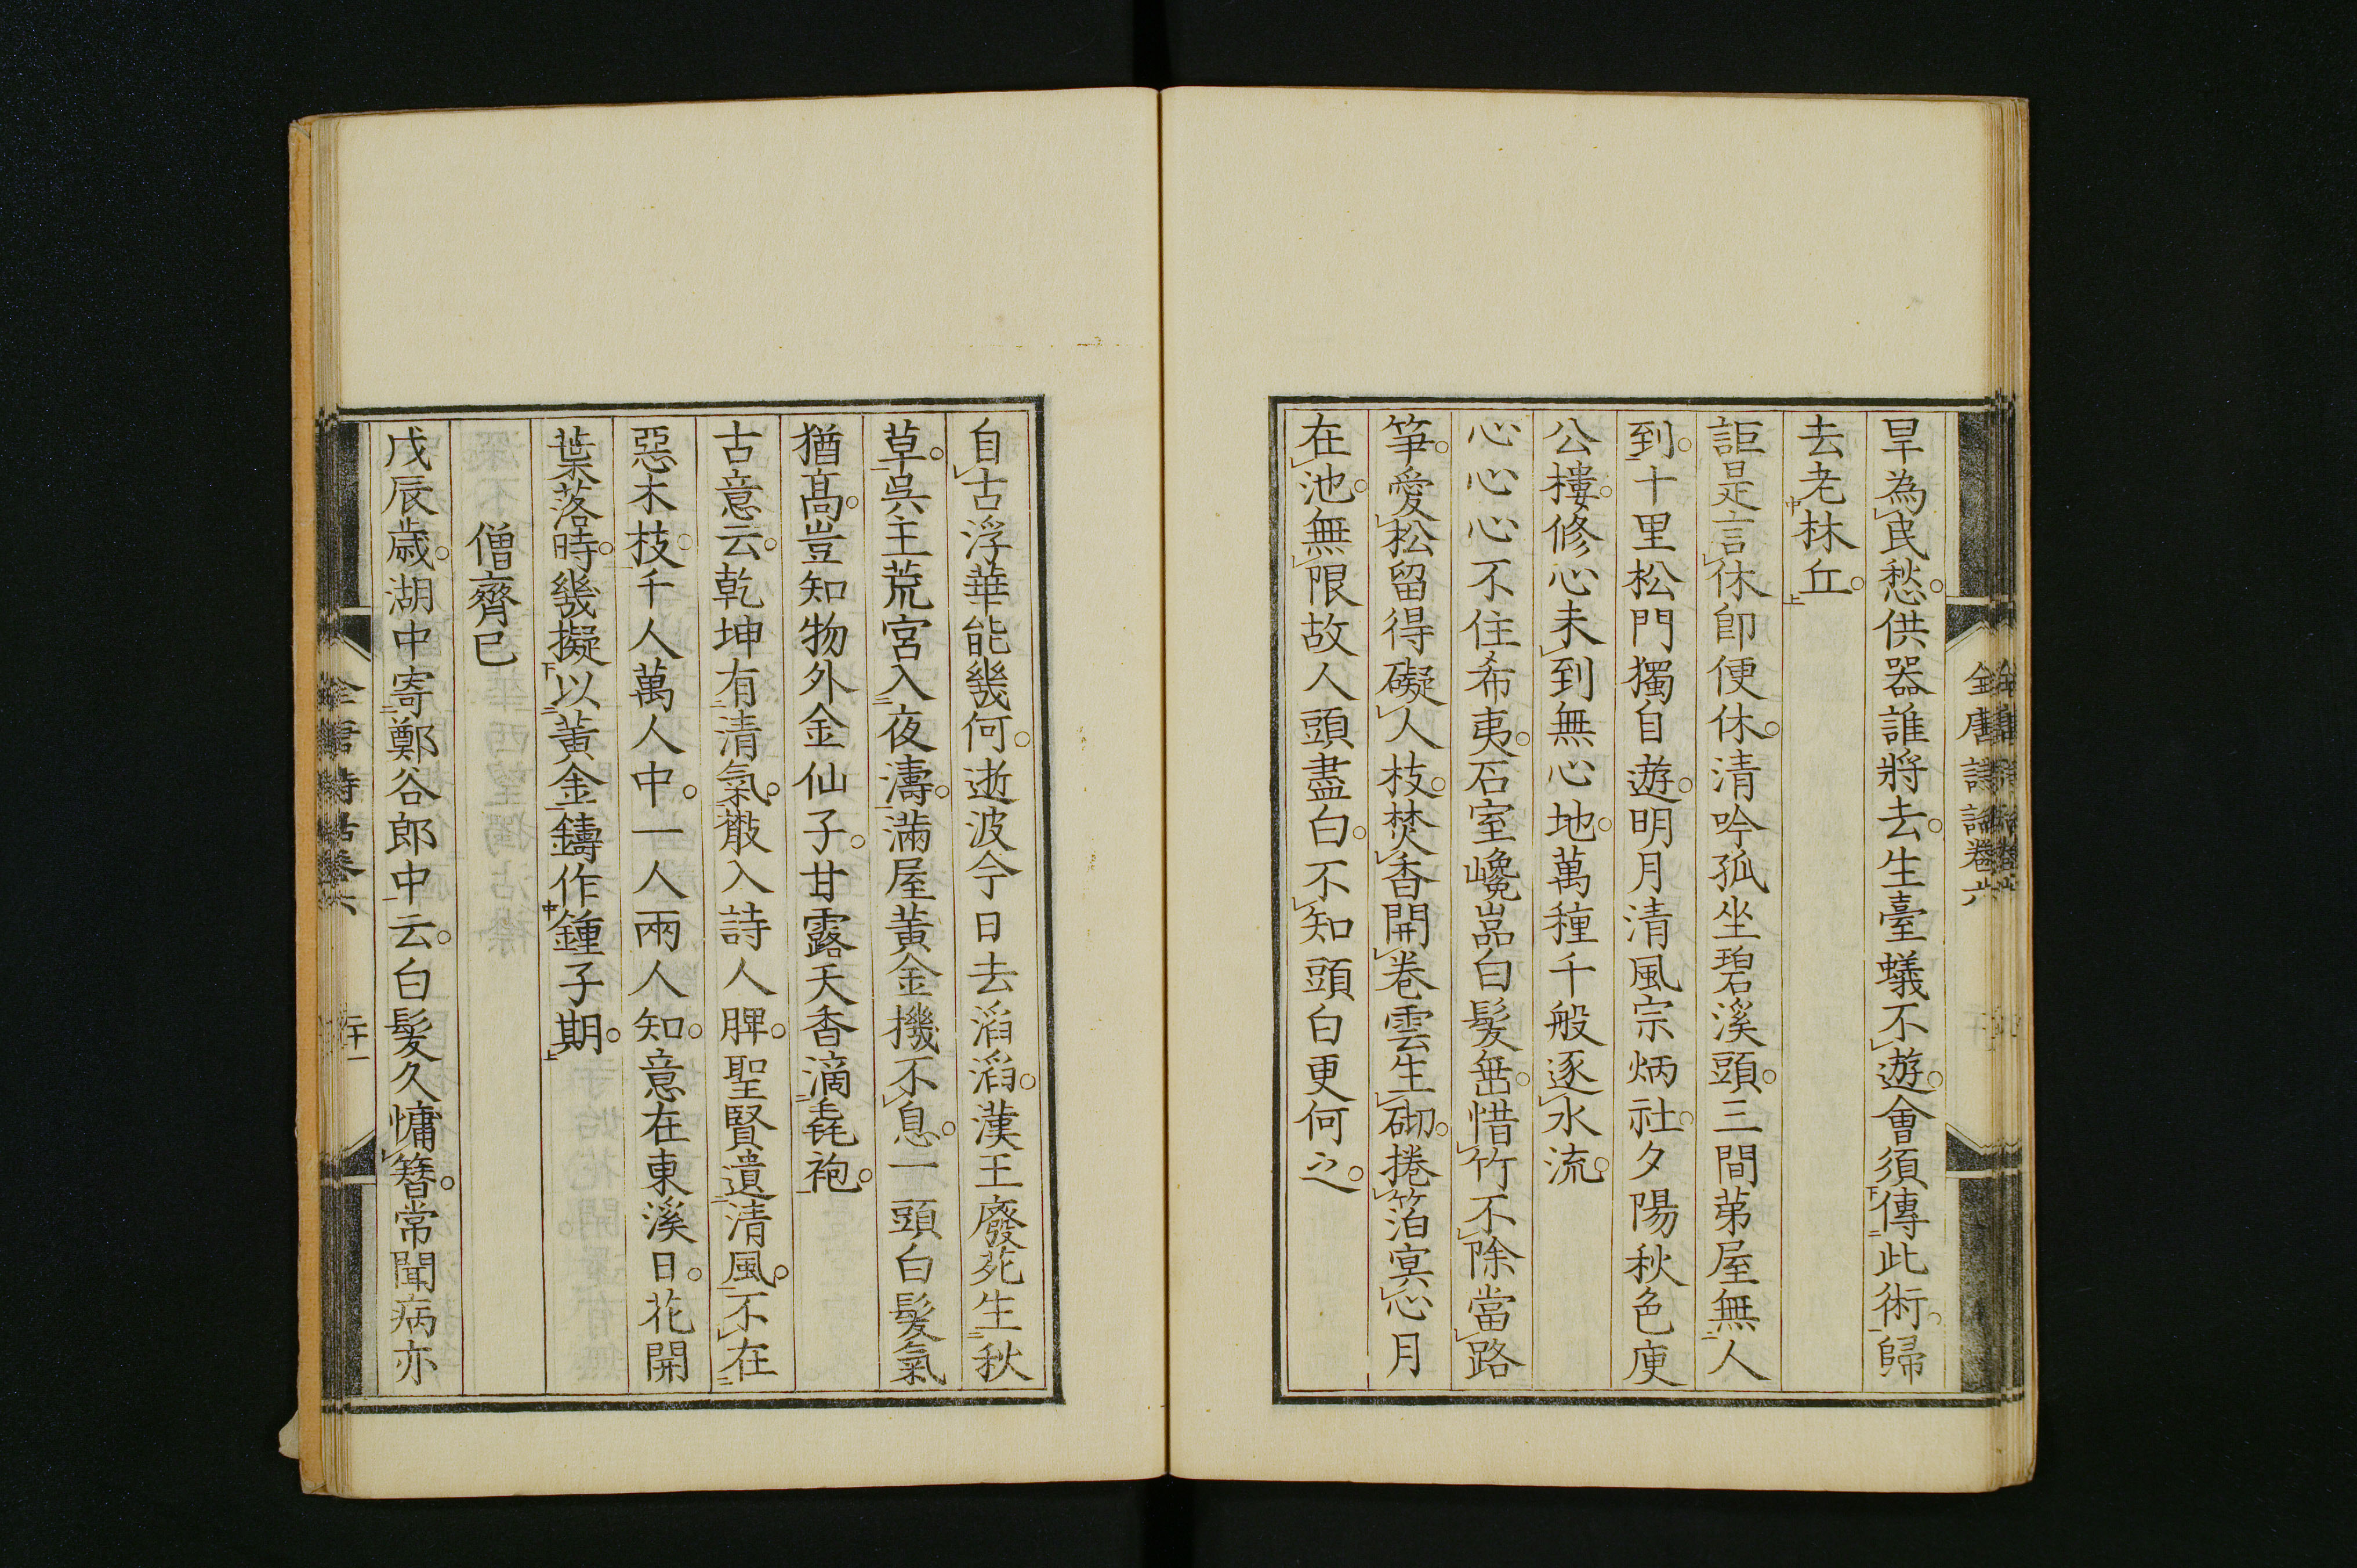 全唐詩話卷六
早為民愁供器誰將去生臺蟻不遊會須傳此術歸
去老林丘
詎是言休卽便休清吟孤坐碧溪頭三間茅屋無人
到十里松門獨自遊明月清風宗炳社夕陽秋色庾
公樓修心未到無心地萬種千般逐水流
心心心不住希夷石室巉嵒白髮垂惜竹不除當路
笋愛松留得礙人枝焚香開卷雲生砌捲箔冥心月
在池無限故人頭盡白不知頭白更何之
自古浮華能幾何逝波今日去滔滔漢王廢苑生秋
草吳主荒宮入夜濤滿屋黃金機不息一頭白髮氣
猶髙豈知物外金仙子甘露天香滴毳袍
古意云乾坤有清氣散入詩人脾聖賢遺清風不在
惡木枝千人萬人中一人兩人知意在東溪日花開
葉落時幾擬以黃金鑄作鍾子期
僧齊已
戊辰歳湖中寄鄭谷郎中云白髮久慵簪常聞病亦
全唐詩話卷六
二十一